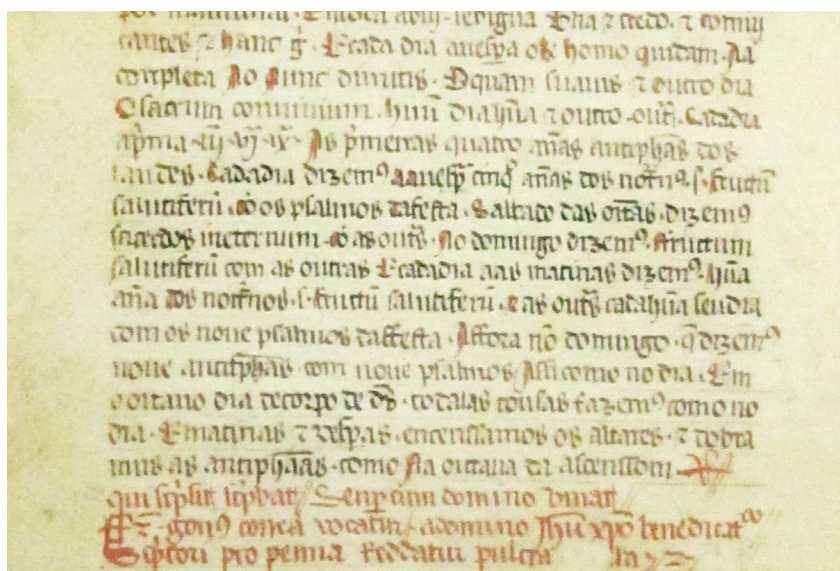 cantes ⁊ hanc g̃. E cada dia auespa os homo quidam. Aa
conpleta Ao Nunc dimitis. O quam suauis ⁊ outro dia
O sacrum conuiuium. huũ dia hũa ⁊ outro outr̃. Cada dia
a p̃ma. iij. vj. ix. As p̃meiras quatro añas antiphãs dos
laudes. Cada dia dizemꝰ aauesp̃ cinq̃ añas dos noct̃nꝰ. s. fructũ
salutiferũ. cõ os psalmos da festa. E altado das oit̃as. dizemꝰ
sacerdos ineternum. cõ as outr̃s. No domingo dizemꝰ. fructum
salutiferũ com as outras E cada dia aas matinas dizemꝰ. hũa
aña dos noct̃nos. s. fructũ salutiferũ. ⁊ as outr̃s cada hũa seu dia
com os noue psalmos daffesta. Affora nõ domingo. q̃ dizemꝰ
noue antifphãs com noue psalmos Assi como no dia. Em
o oitauo dia de corpo de ds̃. todalas cousas fazemꝰ como no
dia. E matinas ⁊ vesp̃as. encenssamos os altares. ⁊ dobra
mus as antiphãas. como sta octaua da ascenssom
qui scp̃sit scp̃bat / Semp̃ cum domino viuat
Gonꝰ conca vocatur. adomino Jhũ xp̃o benedicat
Sc̃ptori pro penna Reddatur pulcra